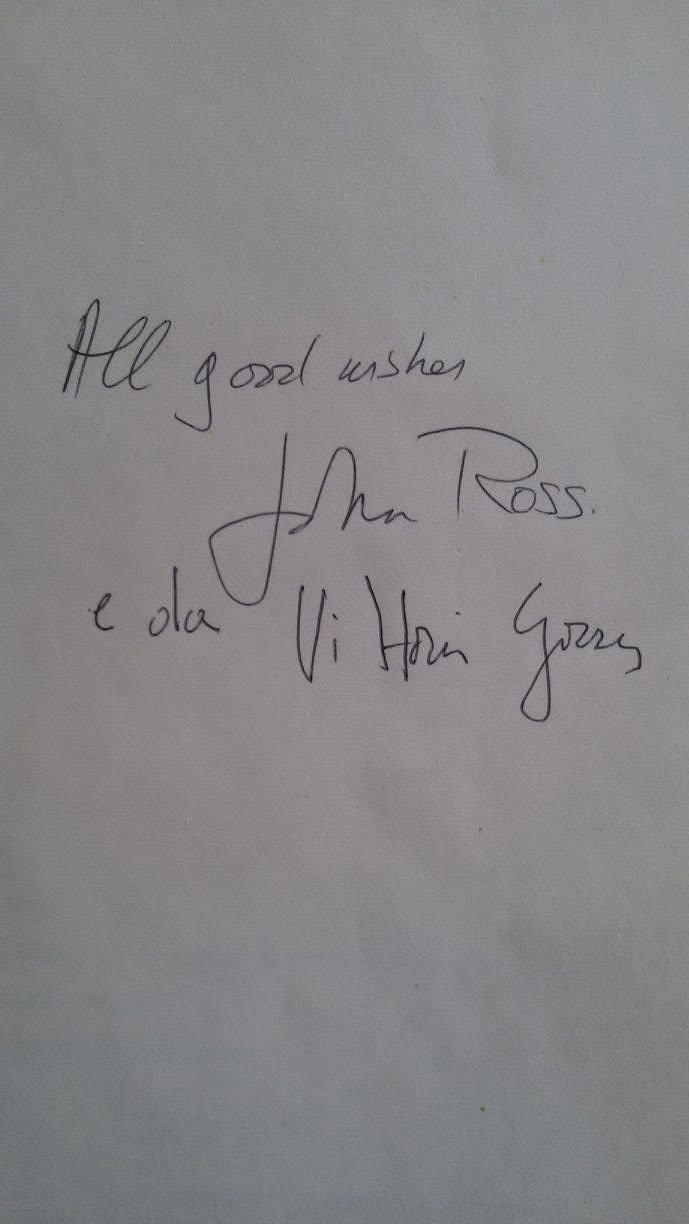 All good wishes
John Ross.
e da Vittorio